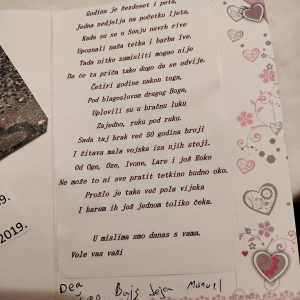 Godina je šezdeset i peta,
Jedna nedjelja na početku ljeta,
Kada su se u Senju navrh rive
Upoznali naša tetka i barba Ive.
Tada nitko zamisliti mogao nije
Da će ta priča tako dugo da se odvije.
Četiri godine nakon toga,
Pod blagoslovom dragog Boga,
Uplovili su u bračnu luku
Zajedno, ruku pod ruku.
Sada taj brak već 50 godina broji
I čitava mala vojska iza njih stoji.
Od Oge, Oze, Ivone, Lare i još Roko
Ne može to ni sve pratit tetkino budno oko.
Prošlo je tako već pola vijeka
I barem ih još jednom toliko čeka.
U mislima smo danas s vama.
Vole vas vaši
9.
2019.
Dea Bajs Jeja Manuel